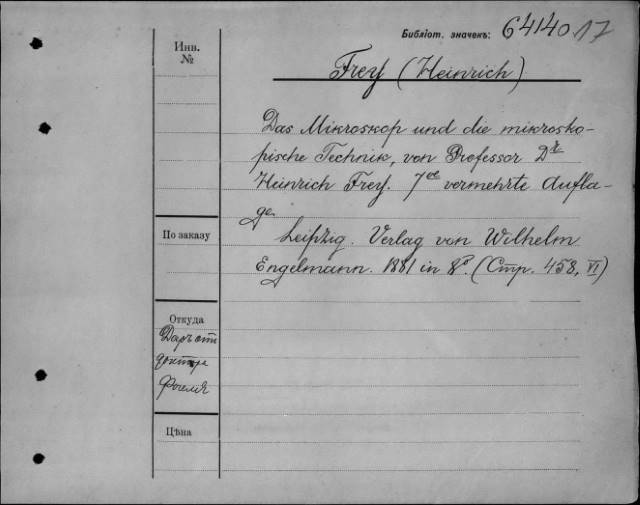 Библіот. значекъ: 6414017
Инв.
№
Frey (Heinrich)
Das Mikroskop und die mikrosko-
pische Technik, von Professor Dr
Heinrich Frey. 7te vermehrte Aufla-
ge.
Leipzig. Verlag von Wilhelm
Engelmann. 1881 in 8º. (Стр. 458, VI)
По заказу
Откуда
Даръ отъ
доктора
Фогеля
Цѣна